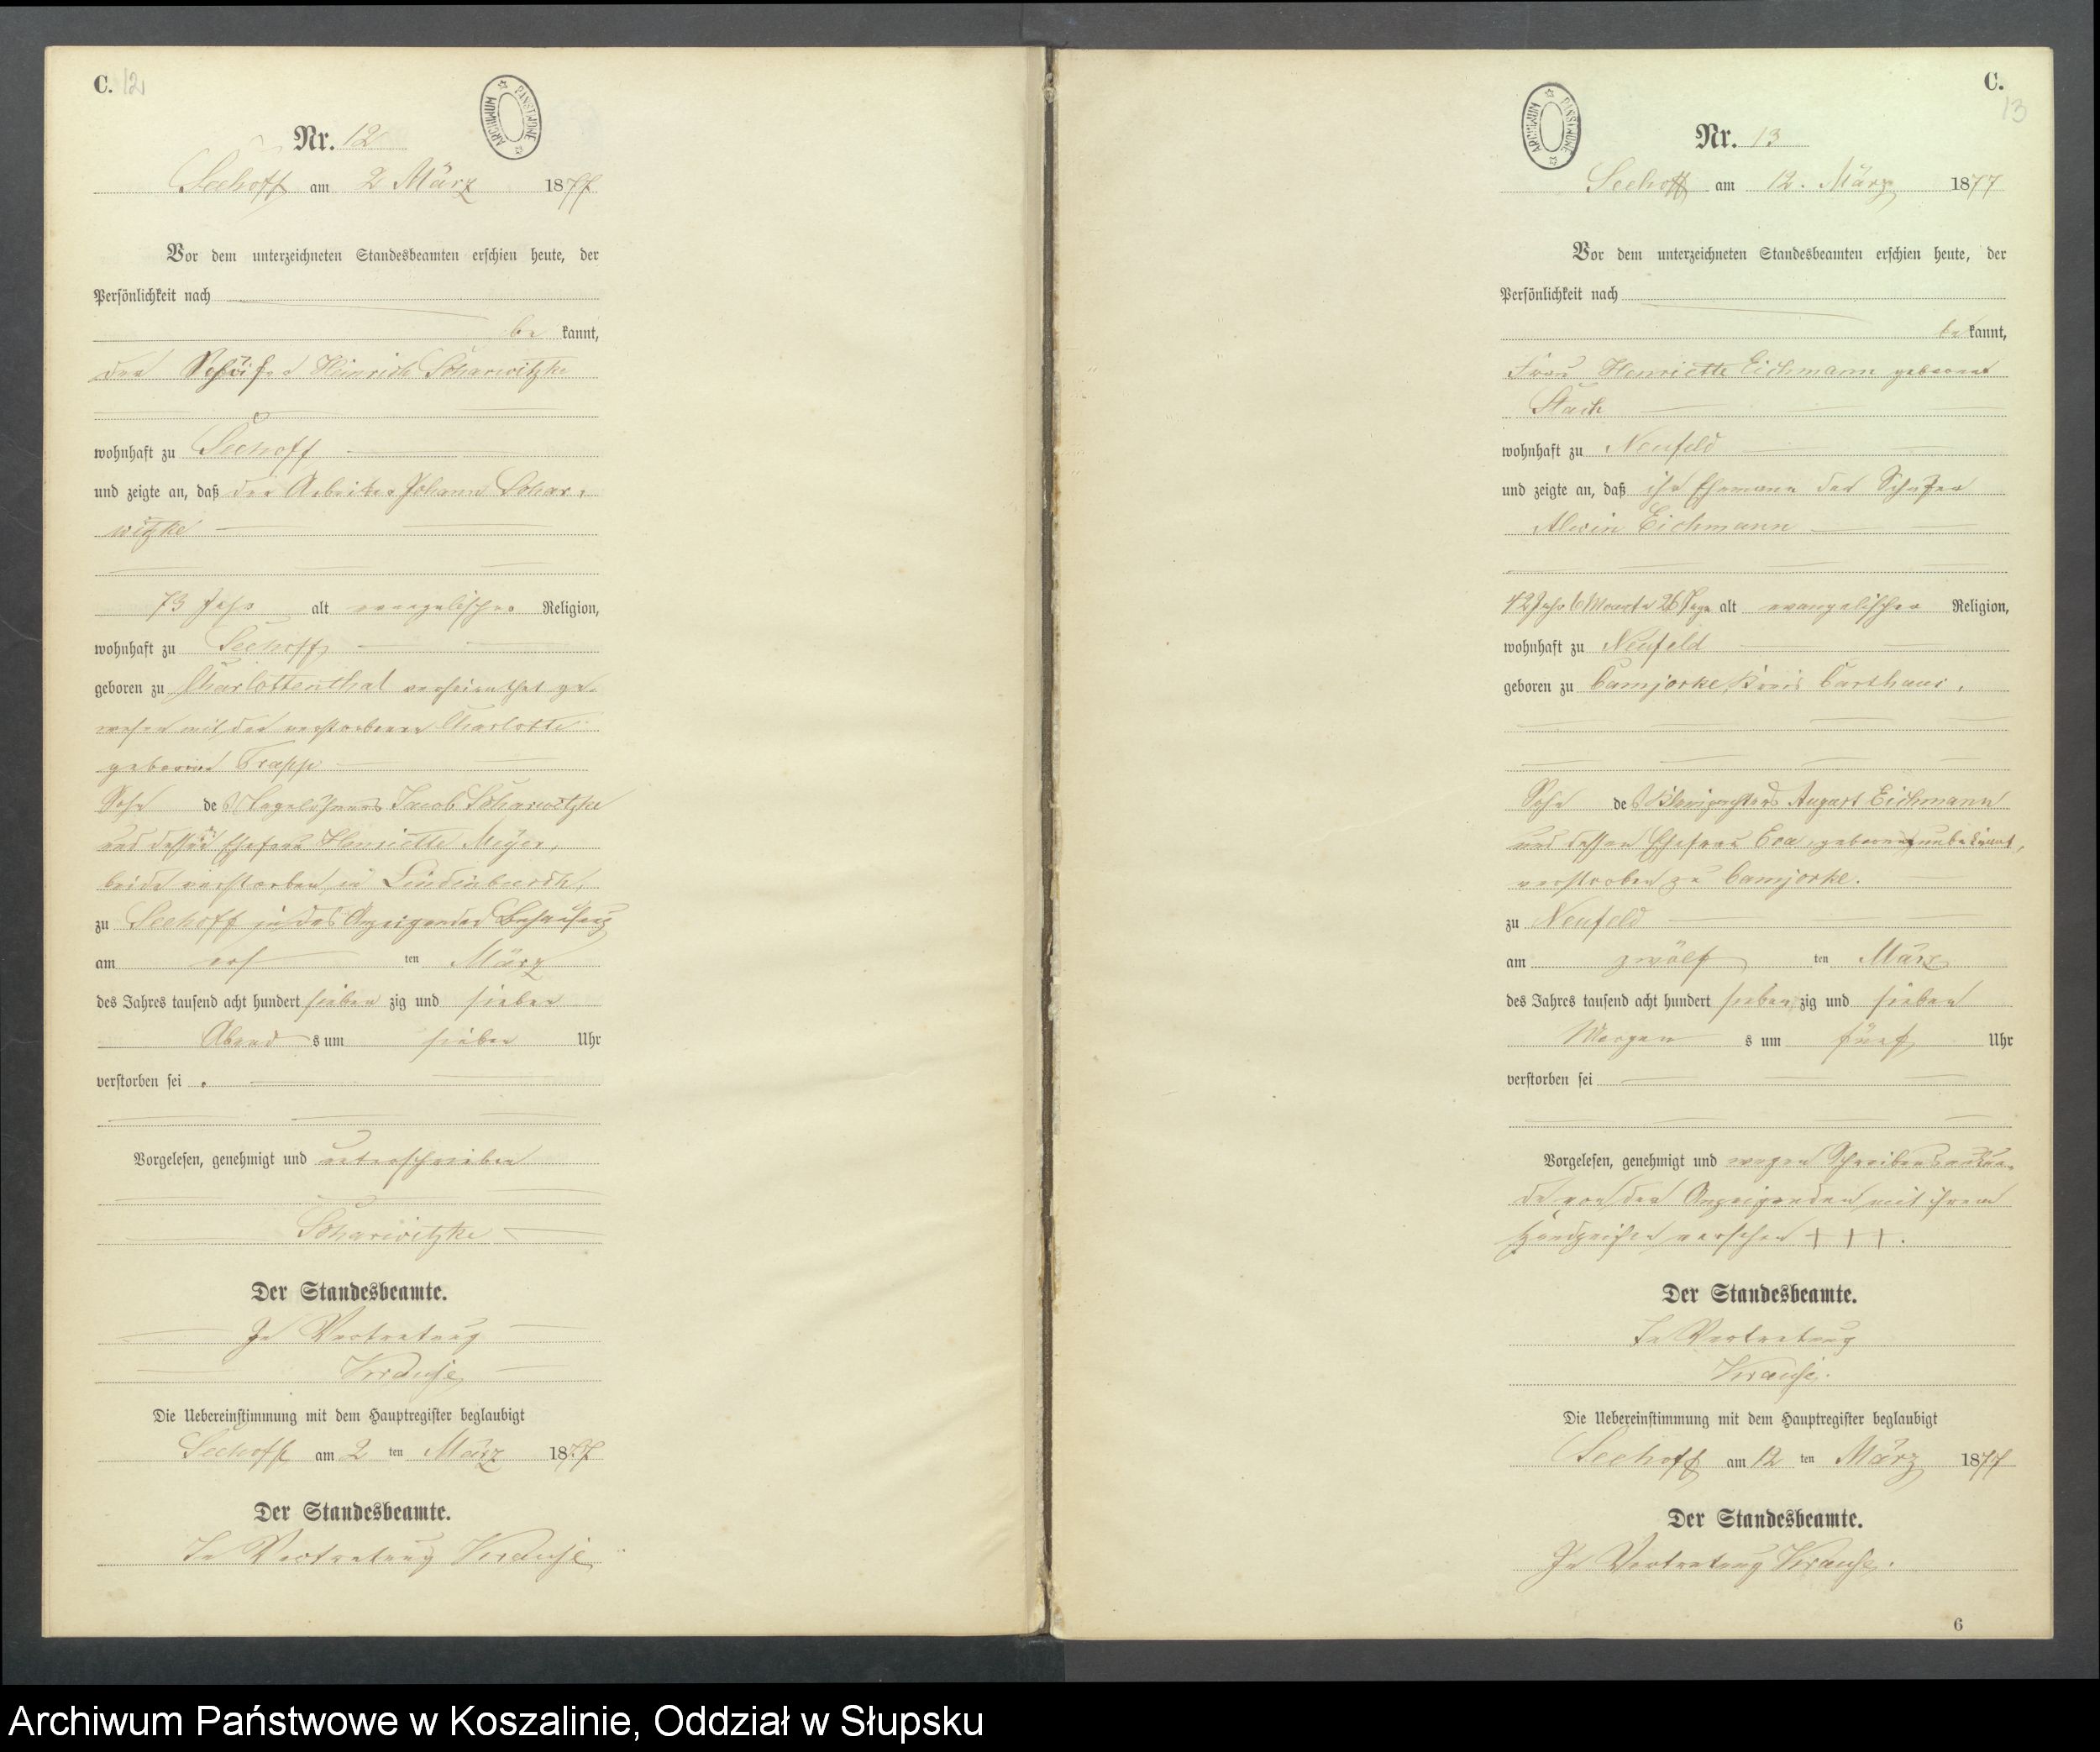 C. 12
ARCHIWUM PAŃSTWOWE
Nr. 12
Seehoff am 2 März 1877
Vor dem unterzeichneten Standesbeamten erschien heute, der
Persönlichkeit nach
be kannt,
der Schäfer Heinrich Scharwitzke
wohnhaft zu Seehoff
und zeigte an, daß der Arbeiter Johann Schar-
witzke
73 Jahr alt evangelischer Religion,
wohnhaft zu Seehoff
geboren zu Charlottenthal verheirathet ge-
wesen mit der verstorbenen Charlotte
geborene Trapp
Sohn des Tagelöhners Jacob Scharwitzke
und dessen Ehefrau Henriette Meyer,
beide verstorben in
zu Seehoff in des Anzeigenden Behausung
am ers ten März
des Jahres tausend acht hundert sieben zig und sieben
Abend s um sieben Uhr
verstorben sei.
Vorgelesen, genehmigt und unterschrieben
Scharwitzke
Der Standesbeamte.
In Vertretung
Krause
Die Uebereinstimmung mit dem Hauptregister beglaubigt
Seehoff am 2 ten März 1877
Der Standesbeamte.
In Vertretung Krause
C.
13
ARCHIWUM PAŃSTWOWE
Nr. 13
Seehoff am 12. März 1877
Vor dem unterzeichneten Standesbeamten erschien heute, der
Persönlichkeit nach
be kannt,
Frau Henriette Eichmann geborene
Stach
wohnhaft zu Neufeld
und zeigte an, daß ihr Ehemann der Schäfer
Alwin Eichmann
42 Jahr 6 Monate 26 Tage alt evangelischer Religion,
wohnhaft zu Neufeld
geboren zu Camjorke Kreis Carthaus,
Sohn des August Eichmann
und dessen Ehefrau Eva, geborene unbekannt,
verstorben zu Camjorke.
zu Neufeld
am zwölf ten März
des Jahres tausend acht hundert sieben zig und sieben
Morgen s um fünf Uhr
verstorben sei
Vorgelesen, genehmigt und wegen Schreibensunkun-
de von der Anzeigenden mit ihrem
Handzeichen versehen + + +.
Der Standesbeamte.
In Vertretung
Krause.
Die Uebereinstimmung mit dem Hauptregister beglaubigt
Seehoff am 12 ten März 1877
Der Standesbeamte.
In Vertretung Krause.
6
Archiwum Państwowe w Koszalinie, Oddział w Słupsku